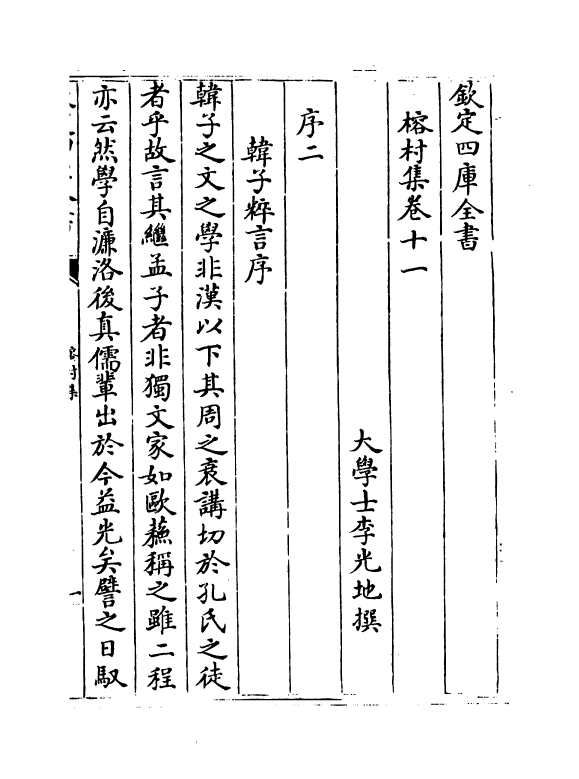 欽定四庫全書
榕村集卷十一
大學士李光地撰
序二
韓子粹言序
韓子之文之學非漢以下其周之衰講切於孔氏之徒
者乎故言其繼孟子者非獨文家如歐蘓稱之雖二程
亦云然學自濂洛後真儒輩出於今益光矣譬之日馭
榕村集
一